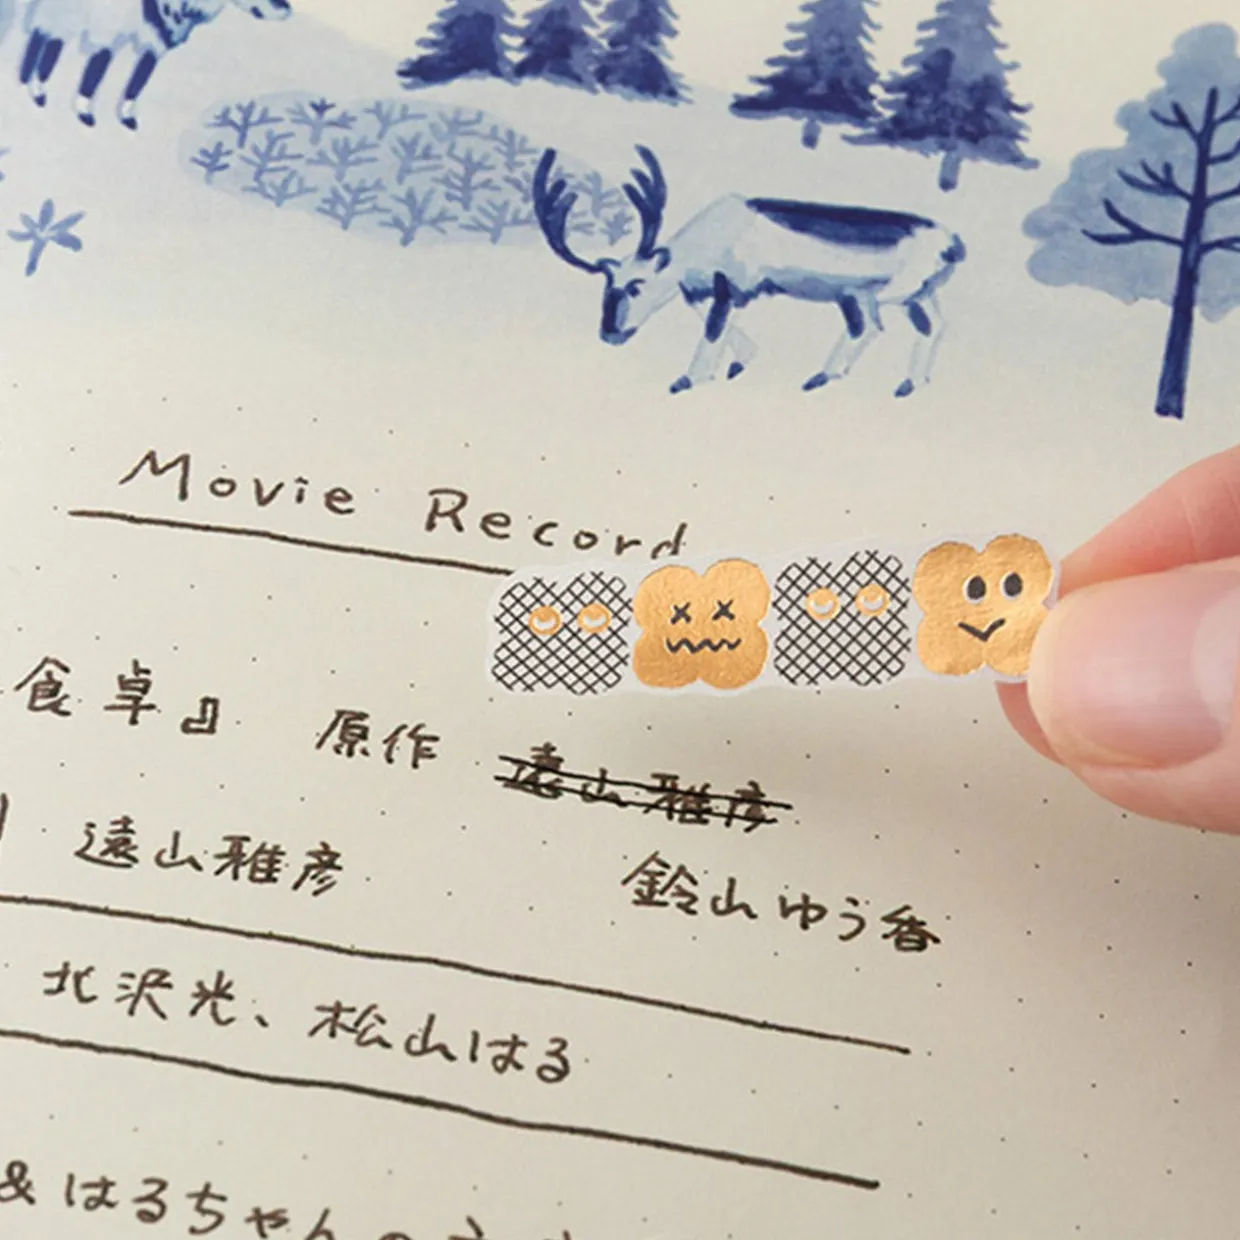 Movie Record
食卓』 原作 遠山雅彦
遠山雅彦 鈴山ゆう香
北沢光、松山はる
& はるちゃんの